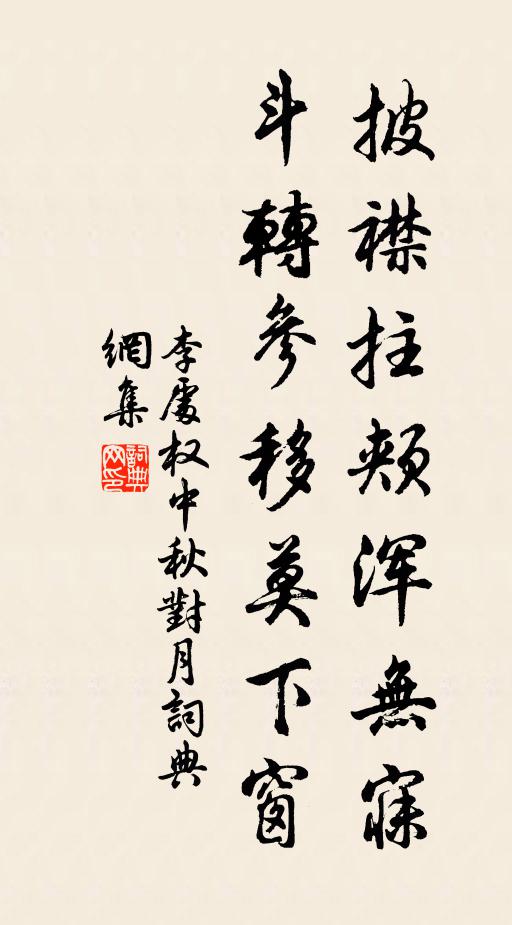 披襟拄颊浑無寐
斗轉參移莫下窗
李處权中秋對月詞典
網集
詞典网印